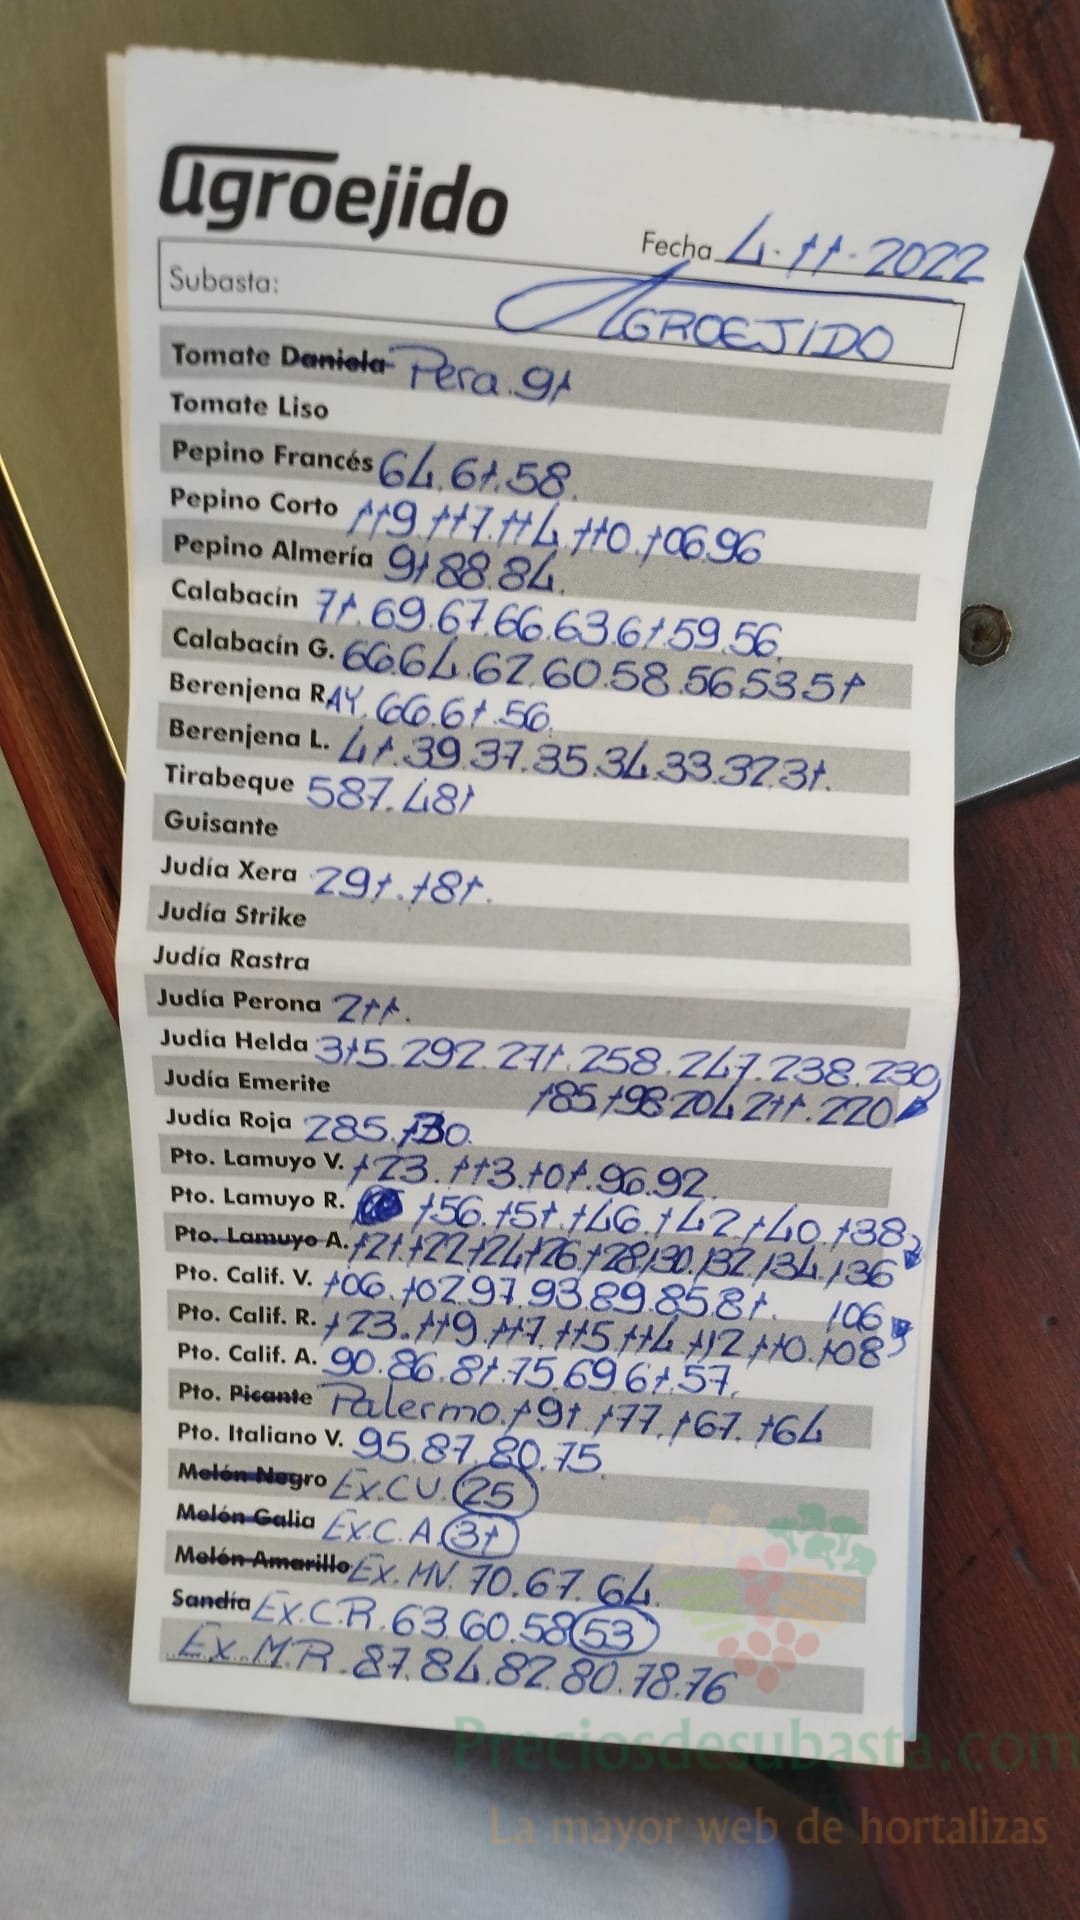 agroejido
Fecha 4.11.2022
Subasta: AGROEJIDO
Tomate Daniela Pera.91
Tomate Liso
Pepino Francés 64.61.58.
Pepino Corto 119.117.114.110.106.96
Pepino Almería 91.88.84.
Calabacín 71.69.67.66.63.61.59.56.
Calabacín G. 66.64.62.60.58.56.53.51
Berenjena RAY. 66.61.56.
Berenjena L. 41.39.37.35.34.33.32.31.
Tirabeque 587.481
Guisante
Judía Xera 291.181.
Judía Strike
Judía Rastra
Judía Perona 211.
Judía Helda 315.292.271.258.247.238.230
Judía Emerite 185.198.204.211.220
Judía Roja 285.130.
Pto. Lamuyo V. 123.113.101.96.92.
Pto. Lamuyo R. 156.151.146.142.140.138
Pto. Lamuyo A. 121.122.124.126.128.130.132.134.136
Pto. Calif. V. 106.102.97.93.89.85.81. 106
Pto. Calif. R. 123.119.117.115.114.112.110.108
Pto. Calif. A. 90.86.81.75.69.61.57.
Pto. Picante Palermo.191.177.167.164
Pto. Italiano V. 95.87.80.75.
Melón Negro Ex.CV. 25
Melón Galia Ex.C.A. 31
Melón Amarillo Ex.MV. 70.67.64.
Sandía Ex.C.R. 63.60.58 53
Ex.M.R. 87.84.82.80.78.76
Preciosdesubasta.com
La mayor web de hortalizas